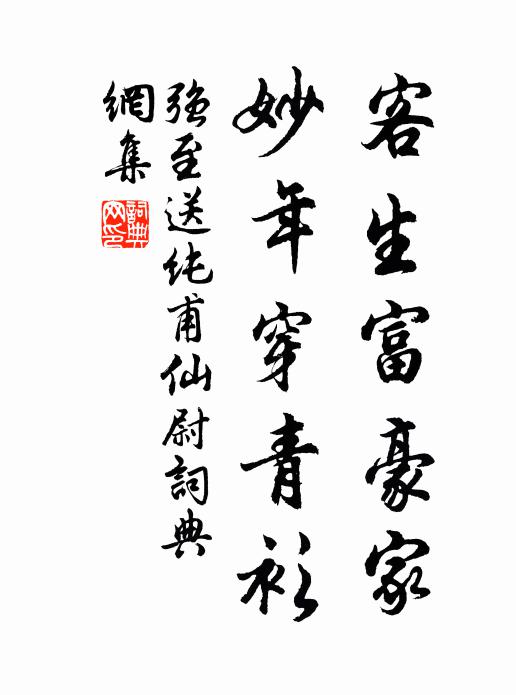 客生富豪家
妙年穿青衫
強至送純甫仙尉詞典
網集
詞典網印